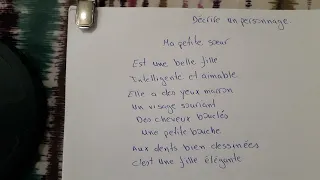 Décrire un personnage
Ma petite sœur
Est une belle fille
Intelligente et aimable
Elle a des yeux marron
Un visage souriant
Des cheveux bouclés
Une petite bouche
Aux dents bien dessinées
C'est une fille élégante